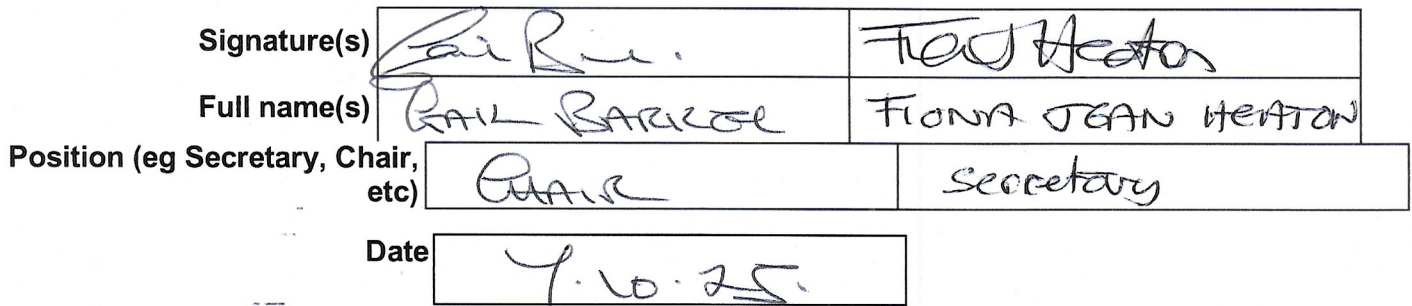 Signature(s) Fiona J Heaton
Full name(s) GAIL BARKER FIONA JEAN HEATON
Position (eg Secretary, Chair,
etc) CHAIR Secretary
Date 7.10.25.